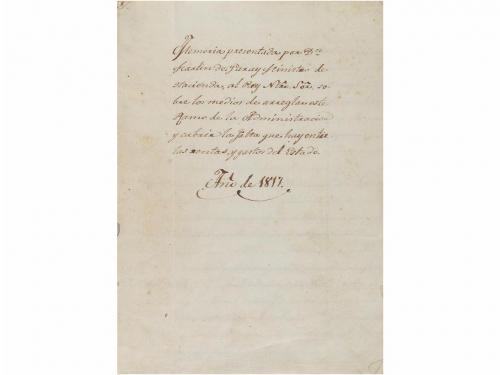 Memoria presentada por Dn
Martin de Garay Ministro de
Hacienda, al Rey Ntro. Sor. so-
bre los medios de arreglar este
Ramo de la Administracion
y cubrir la falta que hay entre
las rentas, y gastos del Estado.
Año de 1817.